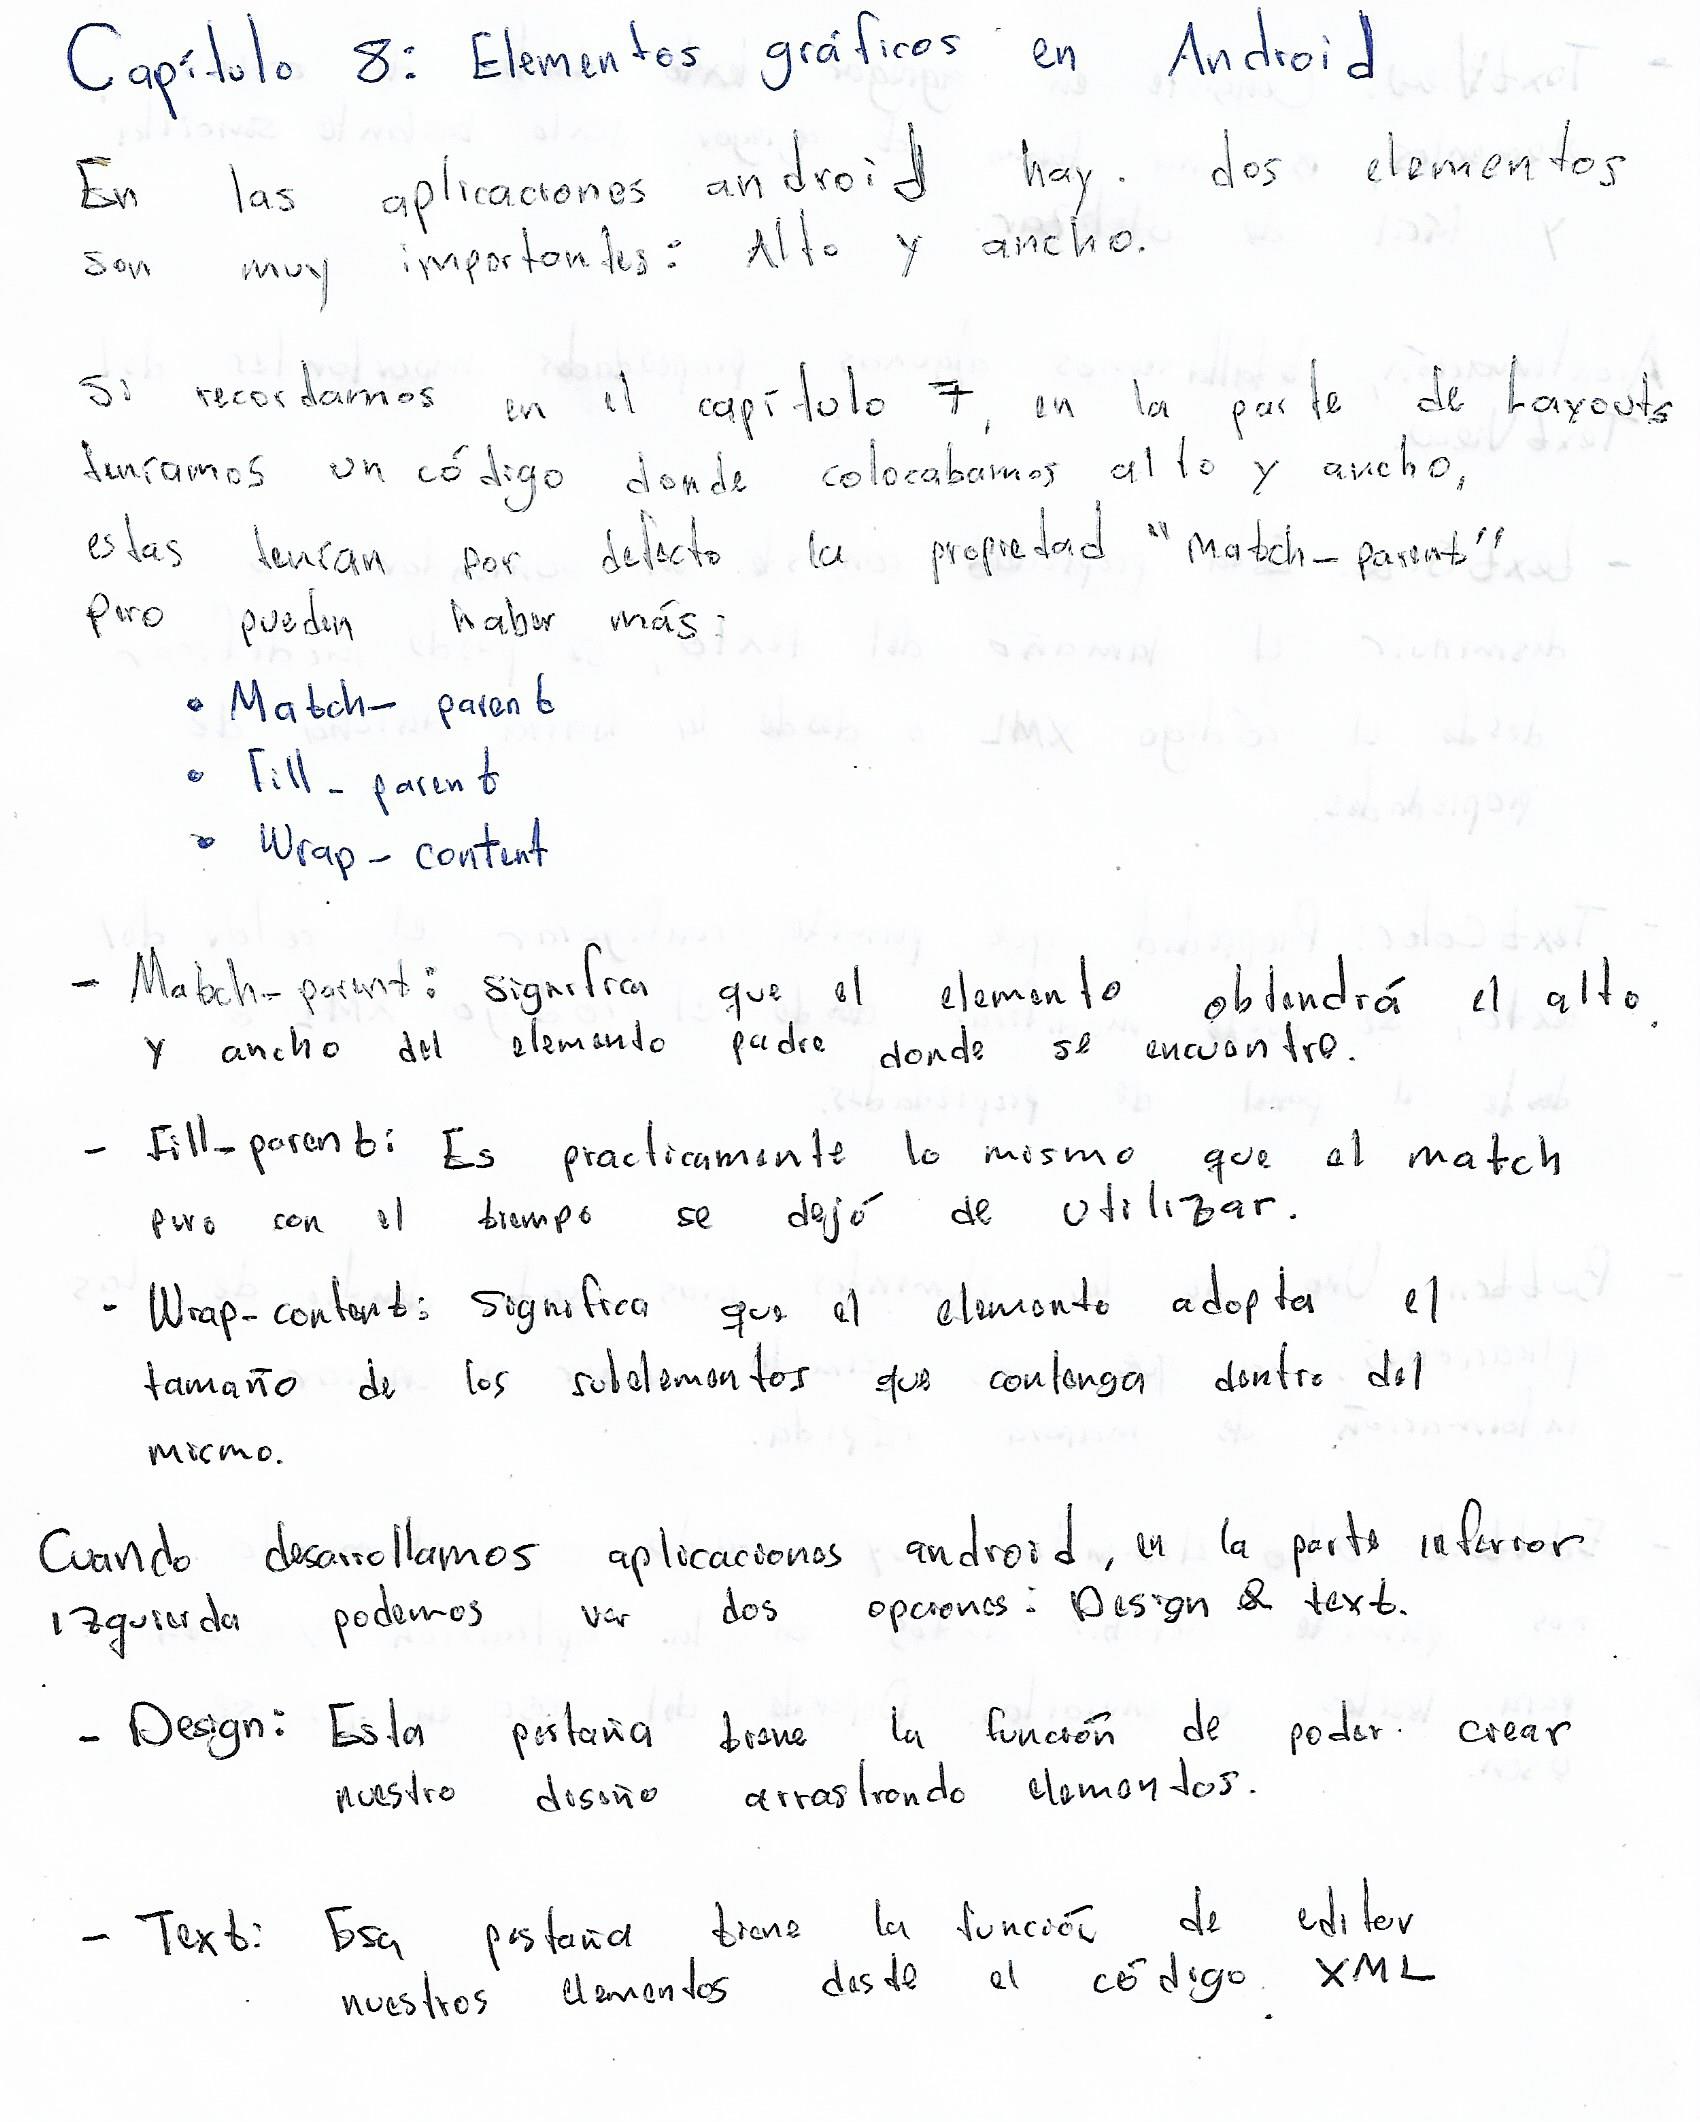 Capítulo 8: Elementos gráficos en Android
En las aplicaciones android hay. dos elementos
son muy importantes: Alto y ancho.
Si recordamos en el capítulo 7, en la parte de Layouts
teníamos un código donde colocabamos alto y ancho,
estas tenían por defecto la propiedad "Match_parent"
pero pueden haber más:
• Match_ parent
• Fill_ parent
• Wrap_ content
- Match_parent: significa que el elemento obtendrá el alto
y ancho del elemento padre donde se encuentre.
- Fill_parent: Es practicamente lo mismo que el match
pero con el tiempo se dejó de utilizar.
- Wrap-content: Significa que el elemento adopta el
tamaño de los subelementos que contenga dentro del
mismo.
Cuando desarrollamos aplicaciones android, en la parte inferior
izquierda podemos ver dos opciones: Design & text.
- Design: Esta pestaña tiene la función de poder crear
nuestro diseño arrastrando elementos.
- Text: Esa pestaña tiene la función de editar
nuestros elementos desde el código XML